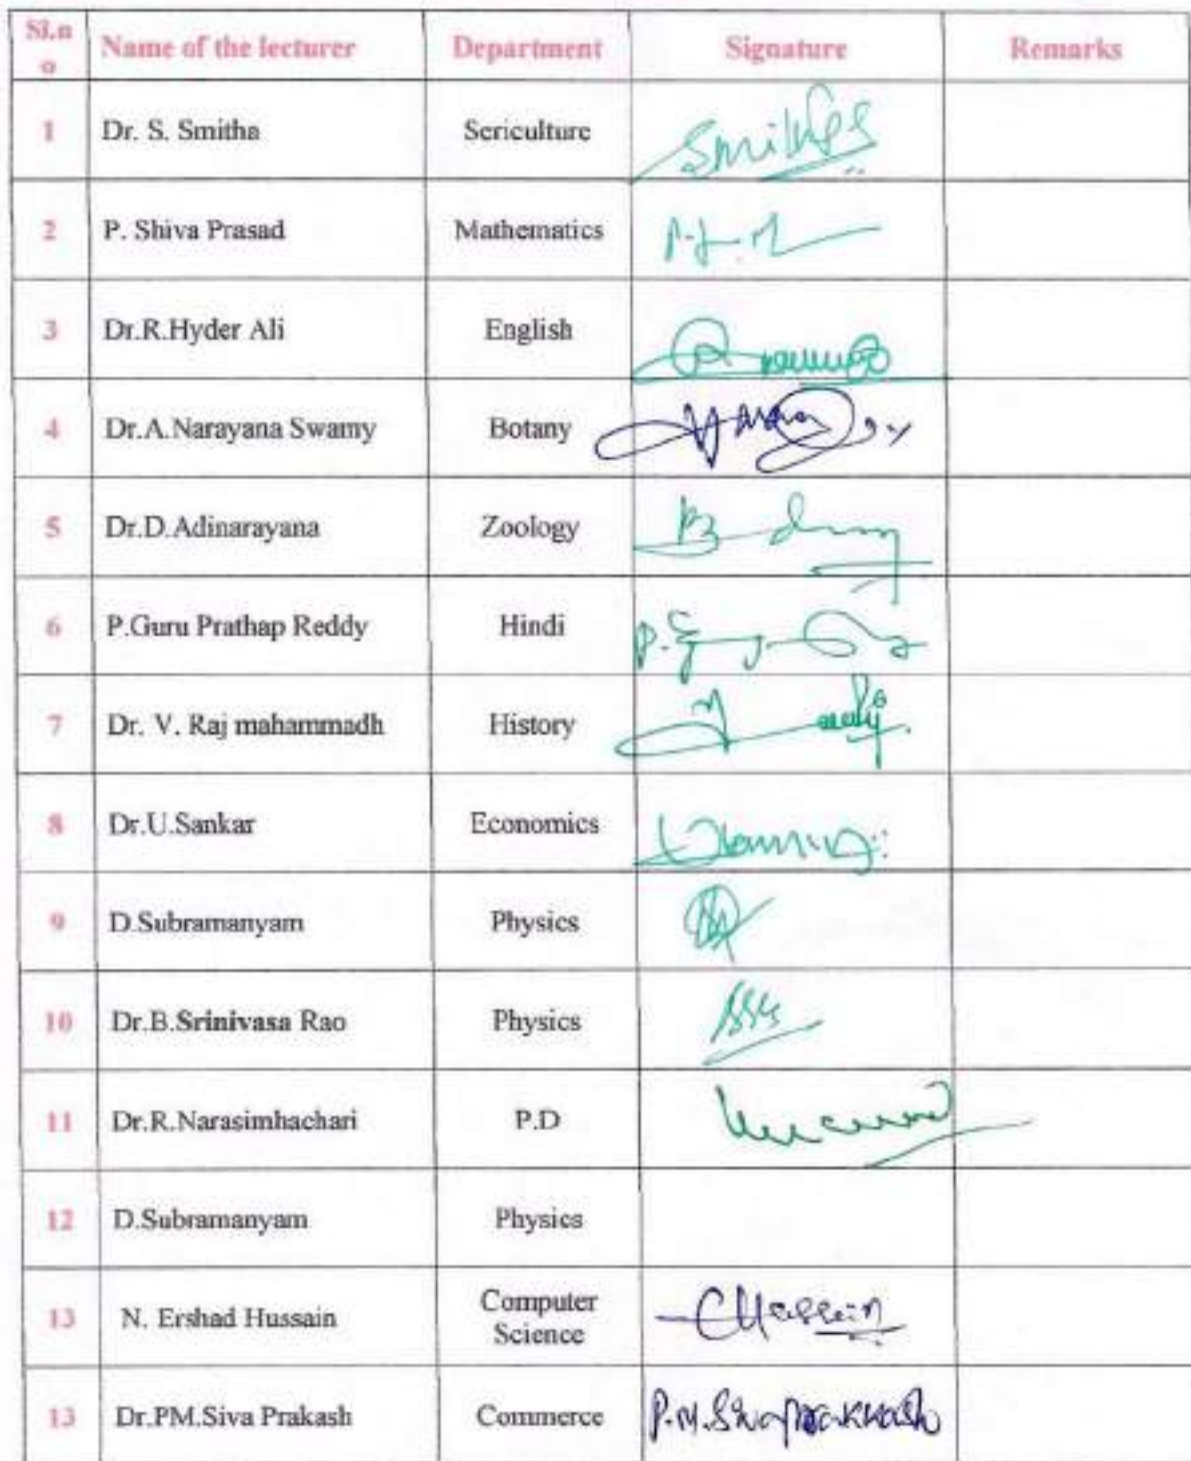 Sl.n
o
Name of the lecturer
Department
Signature
Remarks
1
Dr. S. Smitha
Sericulture
2
P. Shiva Prasad
Mathematics
3
Dr.R.Hyder Ali
English
4
Dr.A.Narayana Swamy
Botany
5
Dr.D.Adinarayana
Zoology
6
P.Guru Prathap Reddy
Hindi
7
Dr. V. Raj mahammadh
History
8
Dr.U.Sankar
Economics
9
D.Subramanyam
Physics
10
Dr.B.Srinivasa Rao
Physics
11
Dr.R.Narasimhachari
P.D
12
D.Subramanyam
Physics
13
N. Ershad Hussain
Computer
Science
13
Dr.PM.Siva Prakash
Commerce